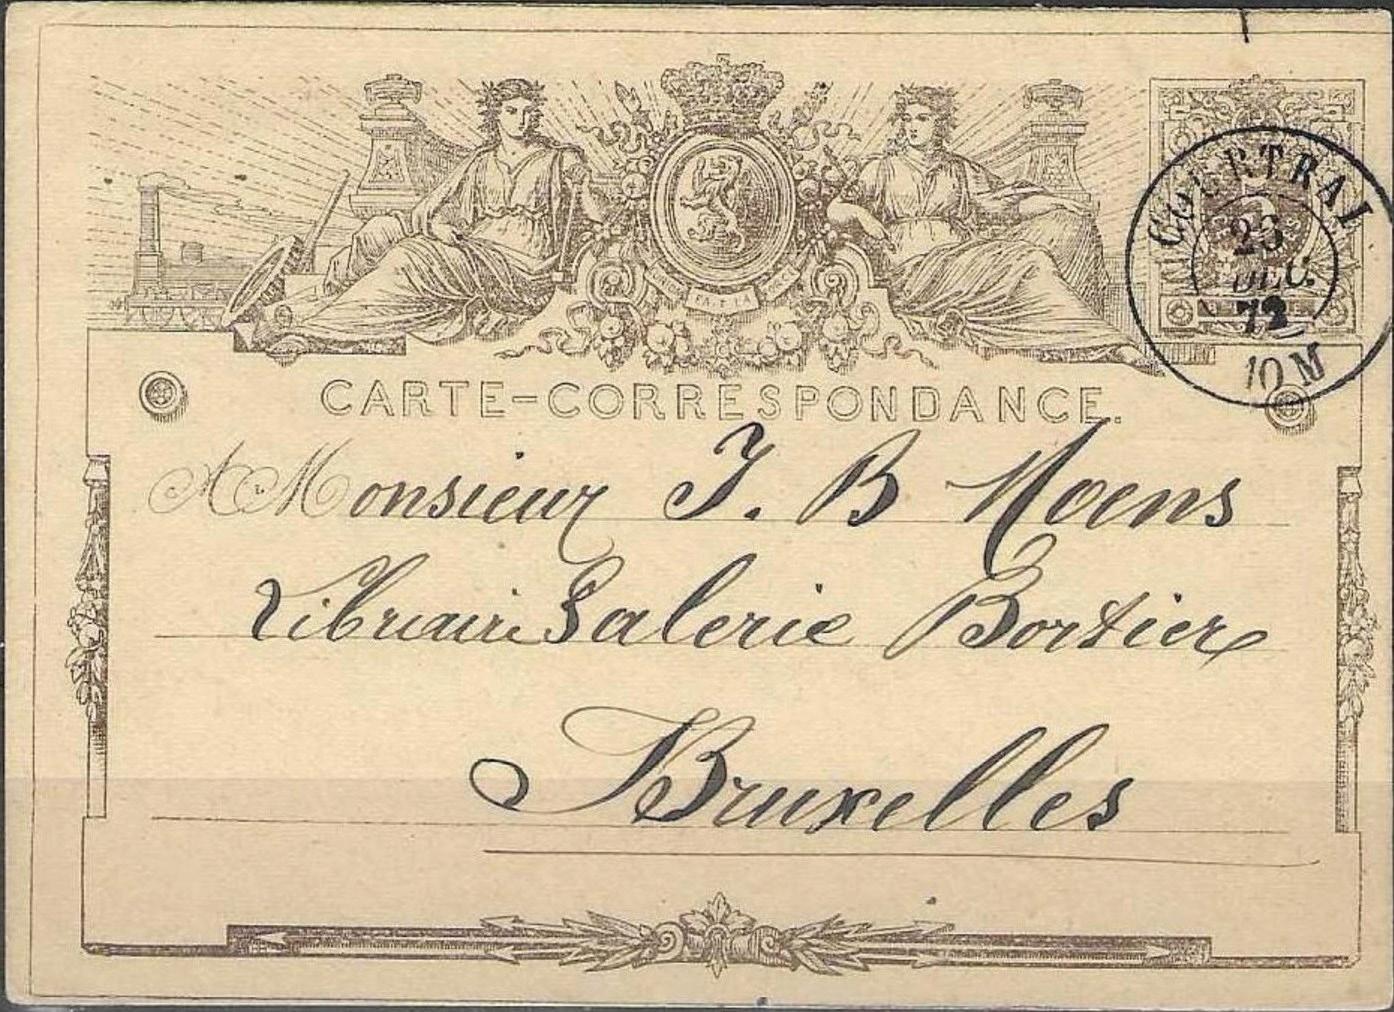 COURTRAI
23
DEC.
72
10 M
CARTE-CORRESPONDANCE.
A Monsieur J. B Moens
Libraire Galerie Bortier
Bruxelles